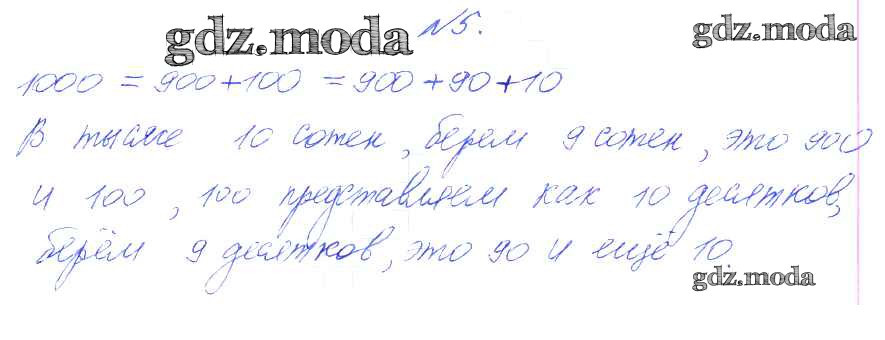 gdz.moda №5. gdz.moda
1000 = 900+100 = 900+90+10
В тысяче 10 сотен, берем 9 сотен, это 900
и 100, 100 представляем как 10 десятков,
берём 9 десятков, это 90 и ещё 10.
gdz.moda